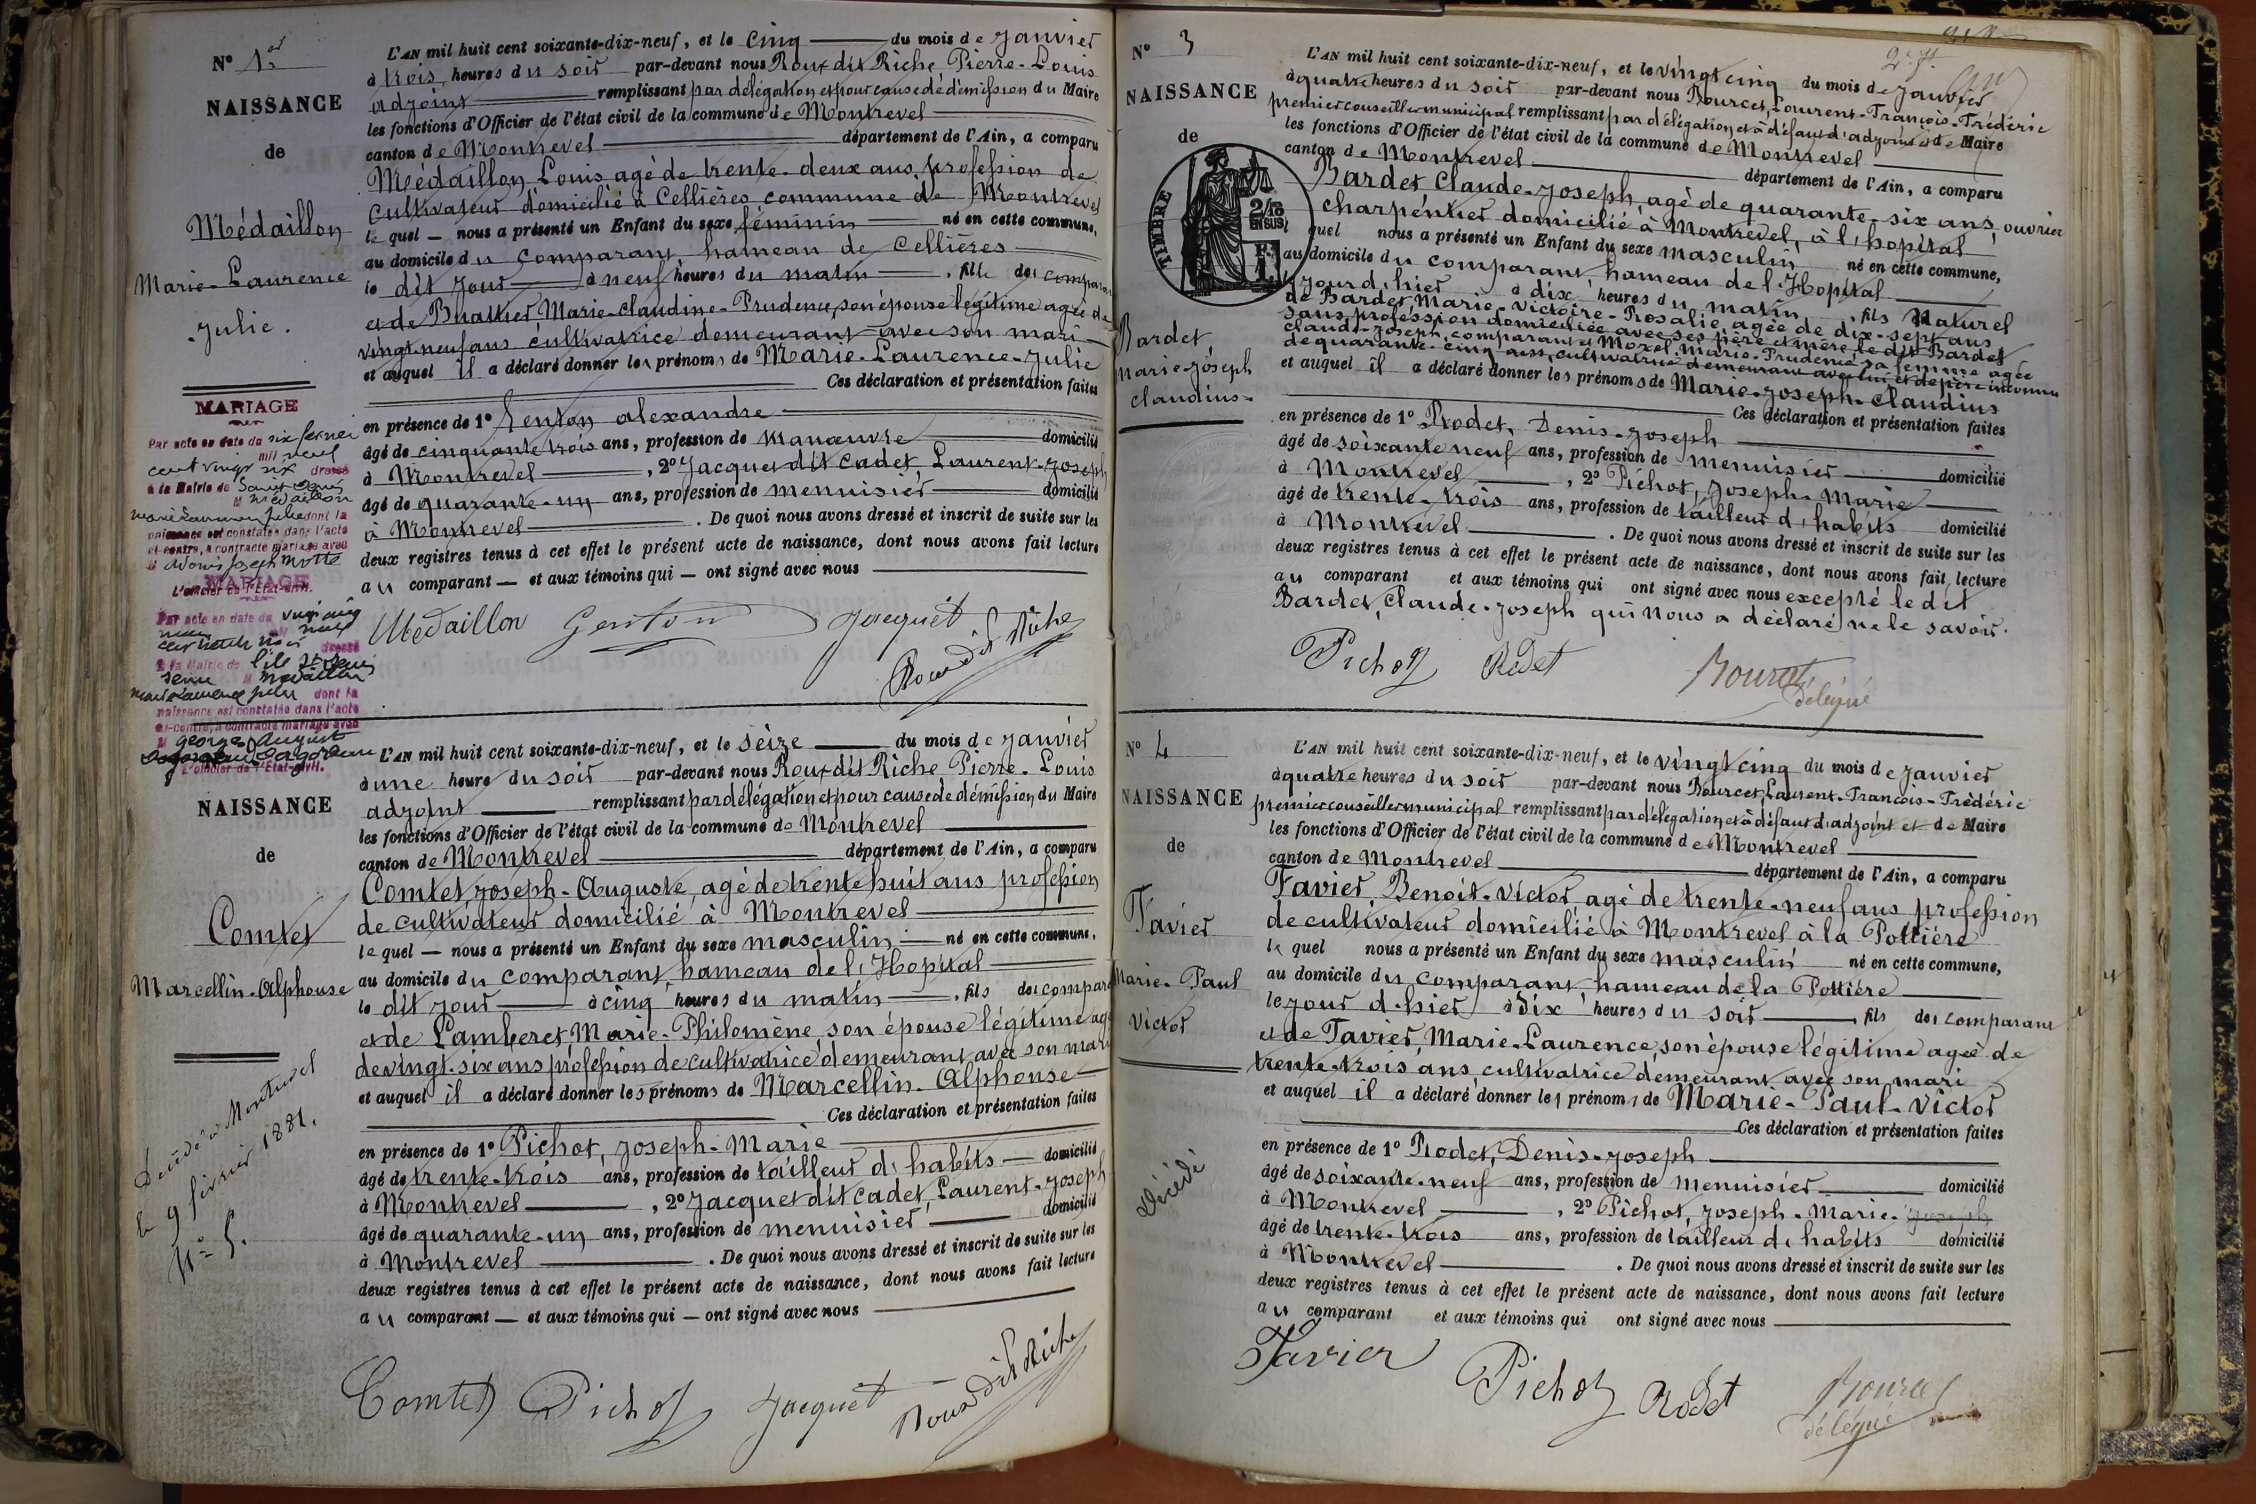 N° 1er
NAISSANCE
de
Médaillon
Marie-Laurence
-Julie.
MARIAGE
Par acte en date du six février
mil neuf
cent vingt six dressé
à la Mairie de Saint Denis
M Médaillon
dont la
naissance est constatée dans l'acte
ci-contre, a contracté mariage avec
M Joseph Motte
MARIAGE
L'officier de l'État-civil.
Par acte en date du vingt cinq
dressé
à la Mairie de l'île St Denis
Seine M Médaillon
Marie Laurence Julie dont la
naissance est constatée dans l'acte
ci-contre, a contracté mariage avec
M Georges August
L'officier de l'État-civil.
L'AN mil huit cent soixante-dix-neuf, et le cinq du mois de Janvier
à trois heures du soir par-devant nous Roux dit Riche Pierre-Louis
adjoint remplissant par délégation et pour cause de démission du Maire
les fonctions d'Officier de l'état civil de la commune de Montrevel
canton de Montrevel département de l'Ain, a comparu
Médaillon Louis agé de trente-deux ans, profession de
Cultivateur domicilié à Cellières commune de Montrevel
le quel — nous a présenté un Enfant du sexe féminin né en cette commune,
au domicile du comparant hameau de Cellières
le dit jour à neuf heures du matin, fille des comparant
et de Buathier Marie-Claudine-Prudence, son épouse légitime agée de
vingt-neuf ans cultivatrice demeurant avec son mari
et auquel il a déclaré donner les prénoms de Marie-Laurence-Julie
Ces déclaration et présentation faites
en présence de 1° Genton alexandre
âgé de cinquante trois ans, profession de manœuvre domicilié
à Montrevel, 2° Jacquet dit Cadet, Laurent-Joseph
âgé de quarante-un ans, profession de menuisier domicilié
à Montrevel. De quoi nous avons dressé et inscrit de suite sur les
deux registres tenus à cet effet le présent acte de naissance, dont nous avons fait lecture
au comparant — et aux témoins qui — ont signé avec nous
Médaillon Genton Jacquet
Roux dit Riche
NAISSANCE
de
Comtet
Marcellin-Alphonse
Décédé à Montrevel
le 9 février 1881.
N° 5.
L'AN mil huit cent soixante-dix-neuf, et le seize du mois de Janvier
à une heure du soir par-devant nous Roux dit Riche Pierre-Louis
adjoint remplissant par délégation et pour cause de démission du Maire
les fonctions d'Officier de l'état civil de la commune de Montrevel
canton de Montrevel département de l'Ain, a comparu
Comtet, Joseph-Auguste, agé de trente huit ans profession
de cultivateur domicilié à Montrevel
le quel — nous a présenté un Enfant du sexe masculin né en cette commune,
au domicile du comparant, hameau de l'Hopital
le dit jour à cinq heures du matin, fils des compara
et de Lamberet, Marie-Philomène, son épouse légitime agé
de vingt-six ans profession de cultivatrice demeurant avec son mari
et auquel il a déclaré donner les prénoms de Marcellin-Alphonse
Ces déclaration et présentation faites
en présence de 1° Pichot, Joseph-Marie
âgé de trente-trois ans, profession de tailleur d'habits — domicilié
à Montrevel, 2° Jacquet dit Cadet, Laurent-Joseph
âgé de quarante-un ans, profession de menuisier domicilié
à Montrevel. De quoi nous avons dressé et inscrit de suite sur les
deux registres tenus à cet effet le présent acte de naissance, dont nous avons fait lecture
au comparant — et aux témoins qui — ont signé avec nous
Comtet Pichot Jacquet Roux dit Riche
N° 3
NAISSANCE
de
TIMBRE
2/10
EN SUS
Bardet
Marie-Joseph
Claudius-
L'AN mil huit cent soixante-dix-neuf, et le vingt cinq du mois de Janvier
à quatre heures du soir par-devant nous Bourcet, Laurent-François-Frédéric
premier conseiller municipal remplissant par délégation et à défaut d'adjoint et de Maire
les fonctions d'Officier de l'état civil de la commune de Montrevel
canton de Montrevel département de l'Ain, a comparu
Bardet Claude-Joseph, agé de quarante-six ans, ouvrier
charpentier domicilié à Montrevel, à l'hopital
quel nous a présenté un Enfant du sexe masculin né en cette commune,
au domicile du comparant hameau de l'Hopital
jour d'hier à dix heures du matin, fils Naturel
de Bardet, Marie-Victoire-Rosalie, agée de dix-sept ans
sans profession domiciliée avec ses père et mère, le dit Bardet
Claude-Joseph, comparant et Morel Marie-Prudence sa femme agée
de quarante-cinq ans, cultivatrice demeurant avec lui et de père inconnu
et auquel il a déclaré donner les prénoms de Marie-Joseph-Claudius
Ces déclaration et présentation faites
en présence de 1° Rodet, Denis-Joseph
âgé de soixante neuf ans, profession de menuisier domicilié
à Montrevel, 2° Pichot, Joseph-Marie
âgé de trente-trois ans, profession de tailleur d'habits domicilié
à Montrevel. De quoi nous avons dressé et inscrit de suite sur les
deux registres tenus à cet effet le présent acte de naissance, dont nous avons fait lecture
au comparant et aux témoins qui ont signé avec nous excepté le dit
Bardet, Claude-Joseph qui nous a déclaré ne le savoir.
Pichot Rodet Bourcet
délégué
N° 4
NAISSANCE
de
Favier
Marie-Paul
Victor
Décédé
L'AN mil huit cent soixante-dix-neuf, et le vingt cinq du mois de Janvier
à quatre heures du soir par-devant nous Bourcet, Laurent-François-Frédéric
premier conseiller municipal remplissant par délégation et à défaut d'adjoint et de Maire
les fonctions d'Officier de l'état civil de la commune de Montrevel
canton de Montrevel département de l'Ain, a comparu
Favier, Benoit-Victor agé de trente-neuf ans profession
de cultivateur domicilié à Montrevel à la Pottière
le quel nous a présenté un Enfant du sexe masculin né en cette commune,
au domicile du comparant hameau de la Pottière
le jour d'hier à dix heures du soir, fils des comparant
et de Favier, Marie-Laurence, son épouse légitime agée de
trente-trois ans, cultivatrice demeurant avec son mari
et auquel il a déclaré donner les prénoms de Marie-Paul-Victor
Ces déclaration et présentation faites
en présence de 1° Rodet, Denis-Joseph
âgé de soixante-neuf ans, profession de menuisier domicilié
à Montrevel, 2° Pichot, Joseph-Marie-Joseph
âgé de trente-trois ans, profession de tailleur d'habits domicilié
à Montrevel. De quoi nous avons dressé et inscrit de suite sur les
deux registres tenus à cet effet le présent acte de naissance, dont nous avons fait lecture
au comparant et aux témoins qui ont signé avec nous
Favier Pichot Rodet Bourcet
délégué